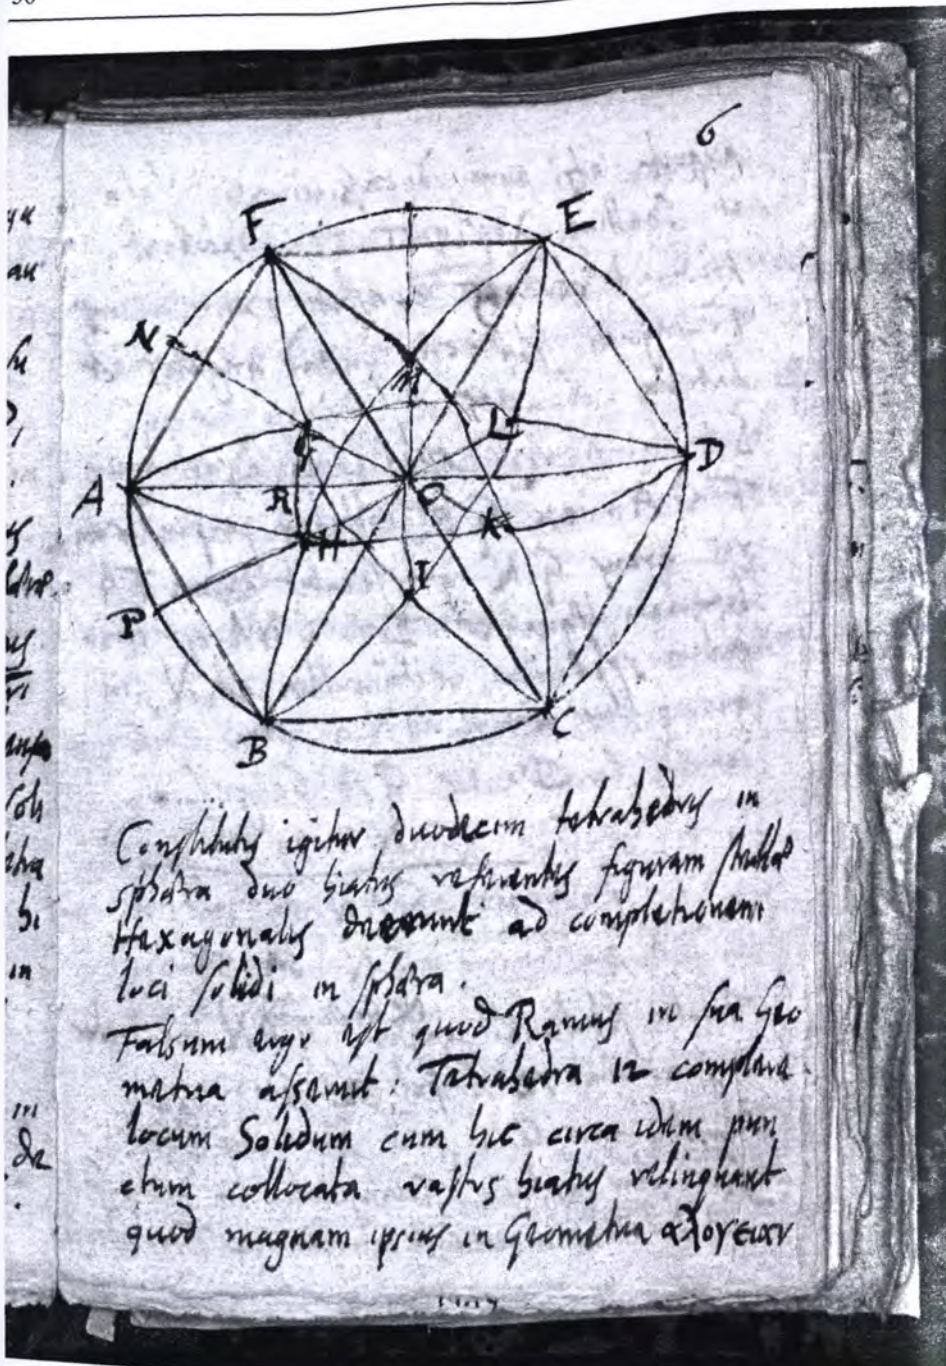 6
F
E
N
M
G
L
D
A
R
O
K
H
I
P
B
C
Constitutis igitur duodecim tetrahedris in
sphæra duo hiatus referentes figuram stellæ
Hexagonalis deerunt ad completionem
loci solidi in sphæra.
Falsum ergo est quod Ramus in sua Geo
metria asserit: Tetrahedra 12 complere
locum Solidum cum hic circa idem pun
ctum collocata vastos hiatus relinquant
quod magnam ipsius in Geometria αλογειαν